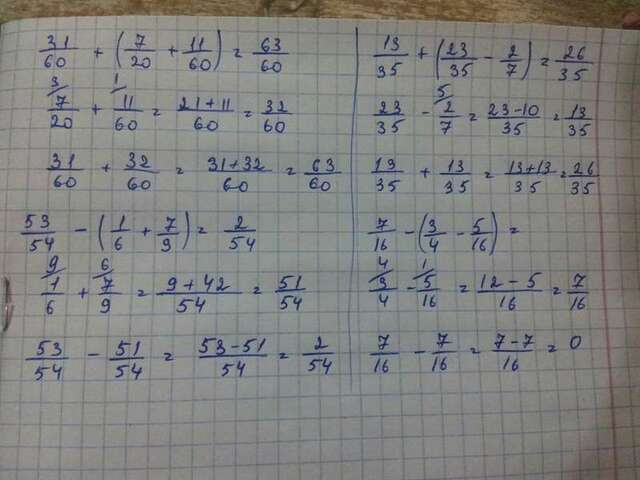 31/60 + (7/20 + 11/60) = 63/60
3/ 7/20 + 1/ 11/60 = 21+11/60 = 32/60
31/60 + 32/60 = 31+32/60 = 63/60
53/54 - (1/6 + 7/9) = 2/54
9/ 1/6 + 6/ 7/9 = 9+42/54 = 51/54
53/54 - 51/54 = 53-51/54 = 2/54
13/35 + (23/35 - 2/7) = 26/35
23/35 - 5/ 2/7 = 23-10/35 = 13/35
13/35 + 13/35 = 13+13/35 = 26/35
7/16 - (3/4 - 5/16) =
4/ 3/4 - 1/ 5/16 = 12-5/16 = 7/16
7/16 - 7/16 = 7-7/16 = 0